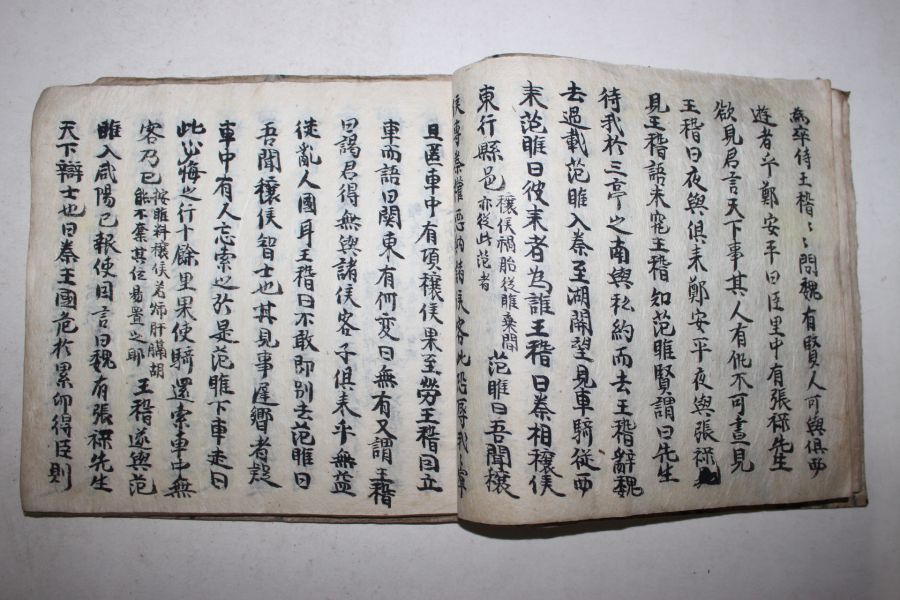 為卒侍王稽〻〻問魏有賢人可與俱西
遊者乎鄭安平曰臣里中有張祿先生
欲見君言天下事其人有仇不可晝見
王稽曰夜與俱来鄭安平夜與張祿
見王稽語未究王稽知范睢賢謂曰先生
待我於三亭之南與私約而去王稽辭魏
去過載范睢入秦至湖關望見車騎從西
来范睢曰彼来者為誰王稽曰秦相穰侯
東行縣邑
穰侯禍胎從睢棄間
亦從此范者
范睢曰吾聞穰
侯專秦權惡內諸侯客此恐辱我寧
且匿車中有頃穰侯果至勞王稽因立
車而語曰關東有何變曰無有又謂王稽
曰謁君得無與諸侯客子俱来乎無益
徒亂人國耳王稽曰不敢即別去范睢曰
吾聞穰侯智士也其見事遲嚮者疑
車中有人忘索之於是范睢下車走曰
此必悔之行十餘里果使騎還索車中無
客乃已
按睢料穰侯若炤肝膈胡
能不棄其位易置之耶
王稽遂與范
睢入咸陽已報使因言曰魏有張祿先生
天下辯士也曰秦王國危於累卵得臣則